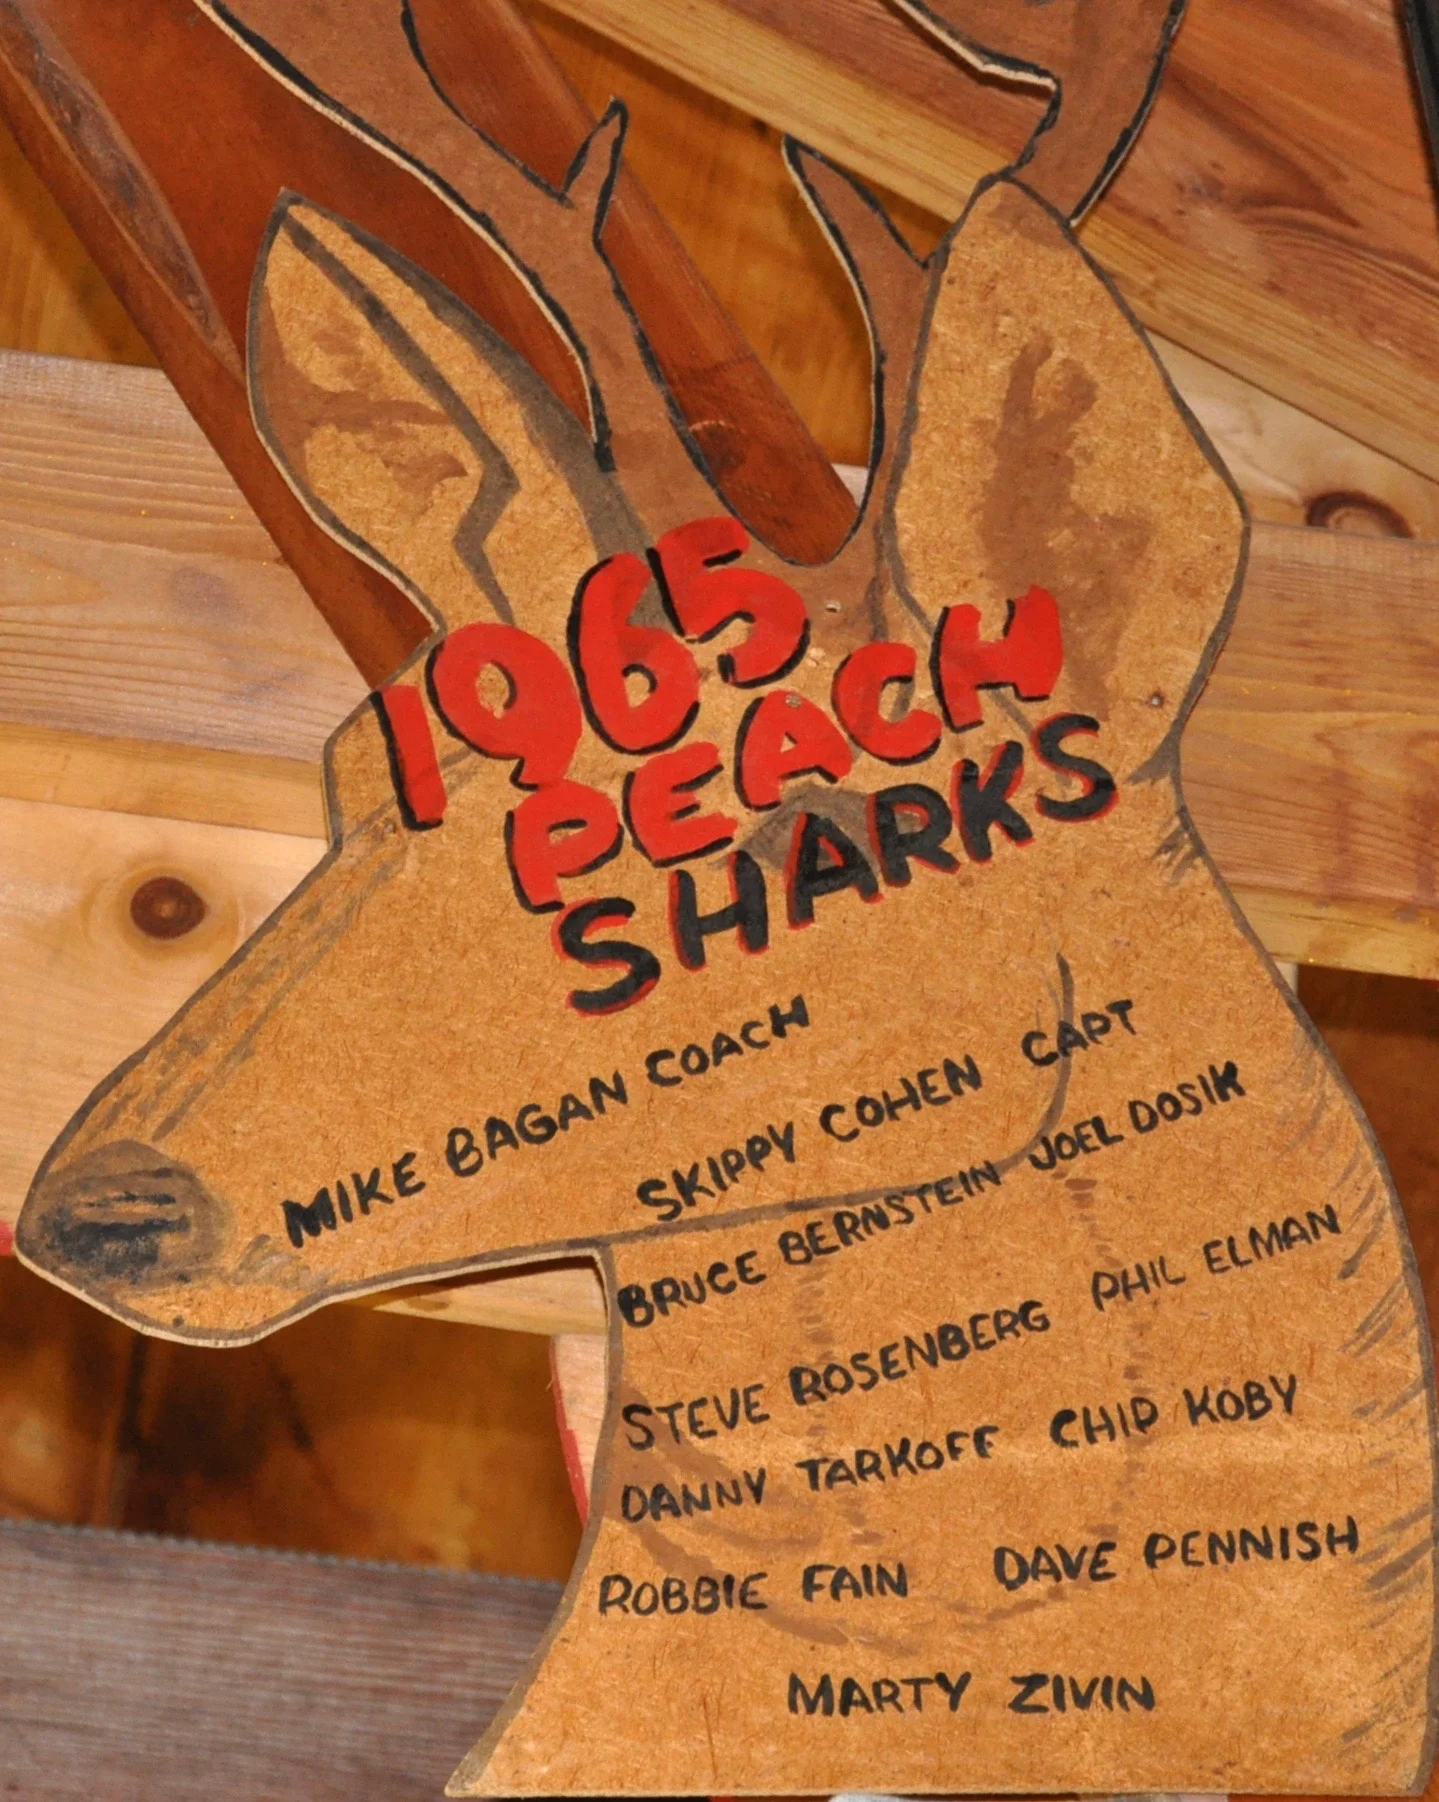 1965
PEACH
SHARKS
MIKE BAGAN COACH
SKIPPY COHEN CAPT
BRUCE BERNSTEIN JOEL DOSIK
STEVE ROSENBERG PHIL ELMAN
DANNY TARKOFF CHIP KOBY
ROBBIE FAIN DAVE PENNISH
MARTY ZIVIN